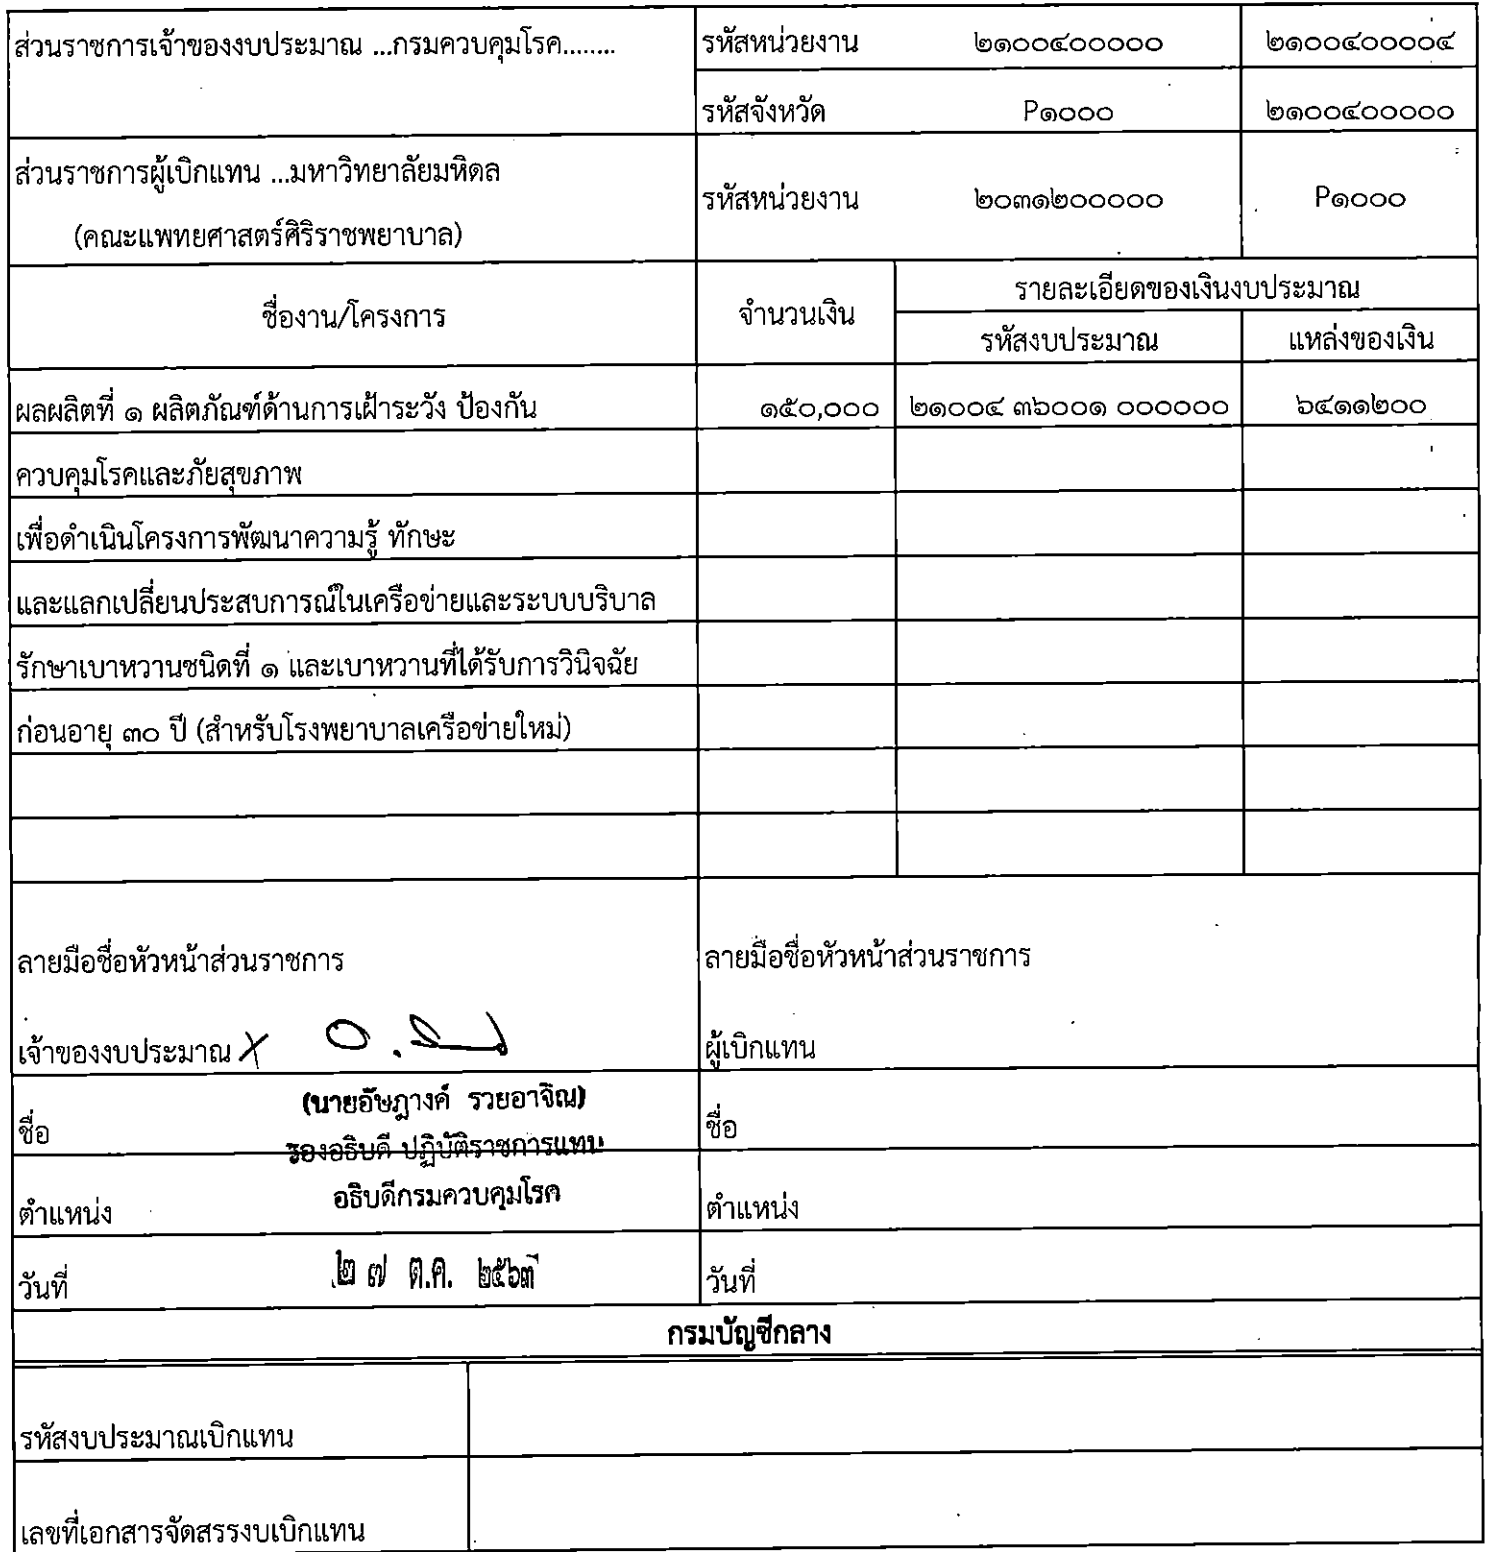 ส่วนราชการเจ้าของงบประมาณ ...กรมควบคุมโรค........ รหัสหน่วยงาน ๒๑๐๐๔๐๐๐๐๐ ๒๑๐๐๔๐๐๐๐๔
รหัสจังหวัด P๑๐๐๐ ๒๑๐๐๔๐๐๐๐๐
ส่วนราชการผู้เบิกแทน ...มหาวิทยาลัยมหิดล
(คณะแพทยศาสตร์ศิริราชพยาบาล)
รหัสหน่วยงาน ๒๐๓๑๒๐๐๐๐๐ P๑๐๐๐
ชื่องาน/โครงการ จำนวนเงิน รายละเอียดของเงินงบประมาณ
รหัสงบประมาณ แหล่งของเงิน
ผลผลิตที่ ๑ ผลิตภัณฑ์ด้านการเฝ้าระวัง ป้องกัน ๑๕๐,๐๐๐ ๒๑๐๐๔ ๓๖๐๐๑ ๐๐๐๐๐๐ ๖๔๑๑๒๐๐
ควบคุมโรคและภัยสุขภาพ
เพื่อดำเนินโครงการพัฒนาความรู้ ทักษะ
และแลกเปลี่ยนประสบการณ์ในเครือข่ายและระบบบริบาล
รักษาเบาหวานชนิดที่ ๑ และเบาหวานที่ได้รับการวินิจฉัย
ก่อนอายุ ๓๐ ปี (สำหรับโรงพยาบาลเครือข่ายใหม่)
ลายมือชื่อหัวหน้าส่วนราชการ ลายมือชื่อหัวหน้าส่วนราชการ
เจ้าของงบประมาณ ผู้เบิกแทน
(นายอัษฎางค์ รวยอาจิณ)
ชื่อ ชื่อ
รองอธิบดี ปฏิบัติราชการแทน
อธิบดีกรมควบคุมโรค
ตำแหน่ง ตำแหน่ง
วันที่ ๒ ๗ ต.ค. ๒๕๖๓ วันที่
กรมบัญชีกลาง
รหัสงบประมาณเบิกแทน
เลขที่เอกสารจัดสรรงบเบิกแทน